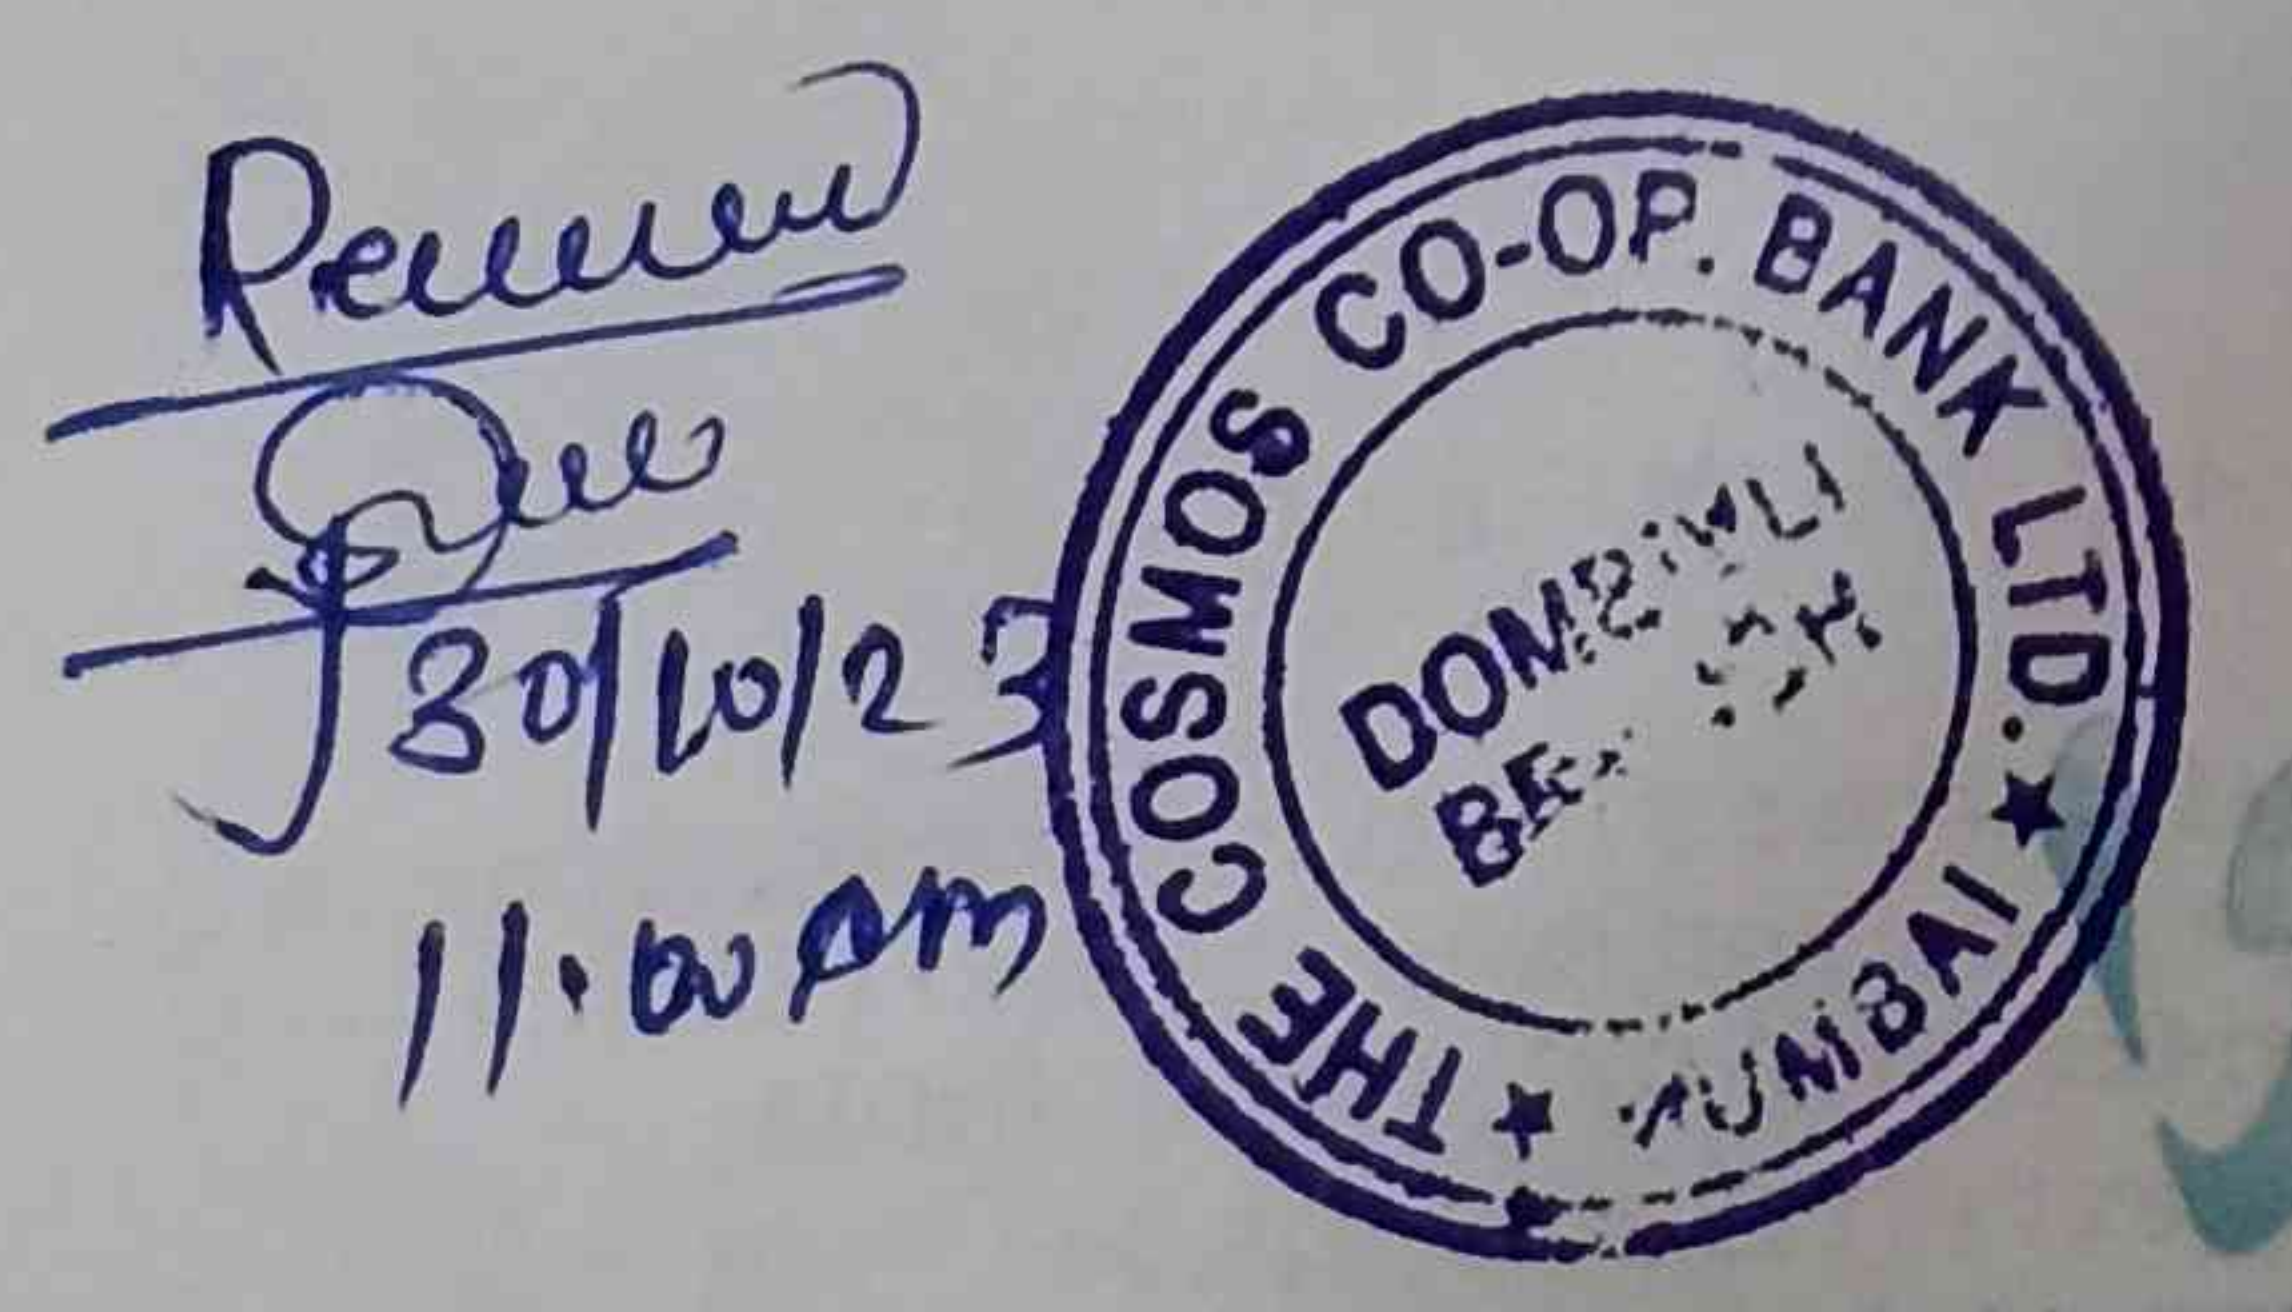 Received
30/10/23
11.00 AM
THE COSMOS CO-OP. BANK LTD. ★ MUMBAI ★
DOMBIVLI